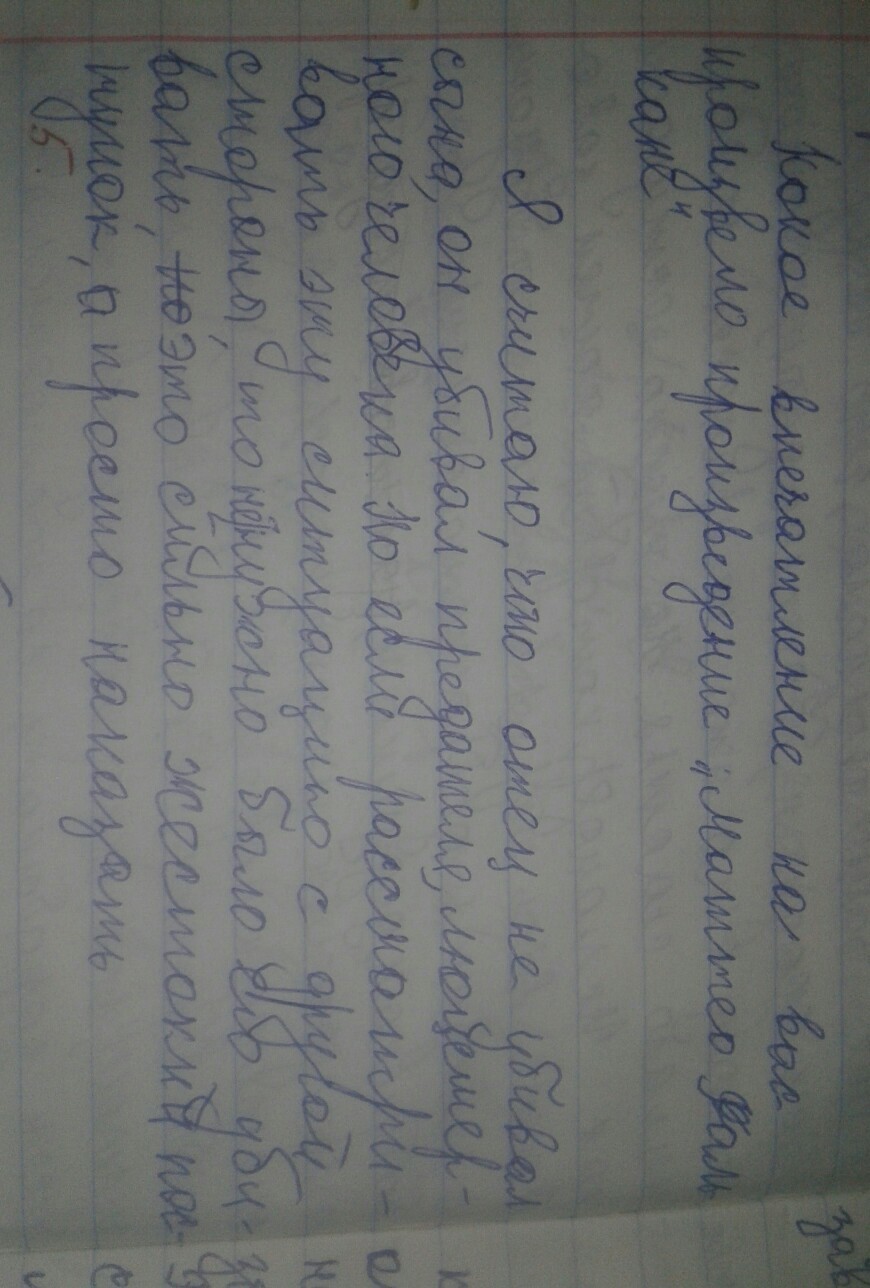 Какое впечатление на вас
произвело произведение „Маттео Фаль
кане"
Я считаю, что отец не убивал
сына, он убивал предателя, люцемер-
ного человека. Но если рассматри-
вать эту ситуацию с другой
стороны, то не нужно было его уби-
вать, это сильно жестокий пос-
тупок, а просто наказать
5.